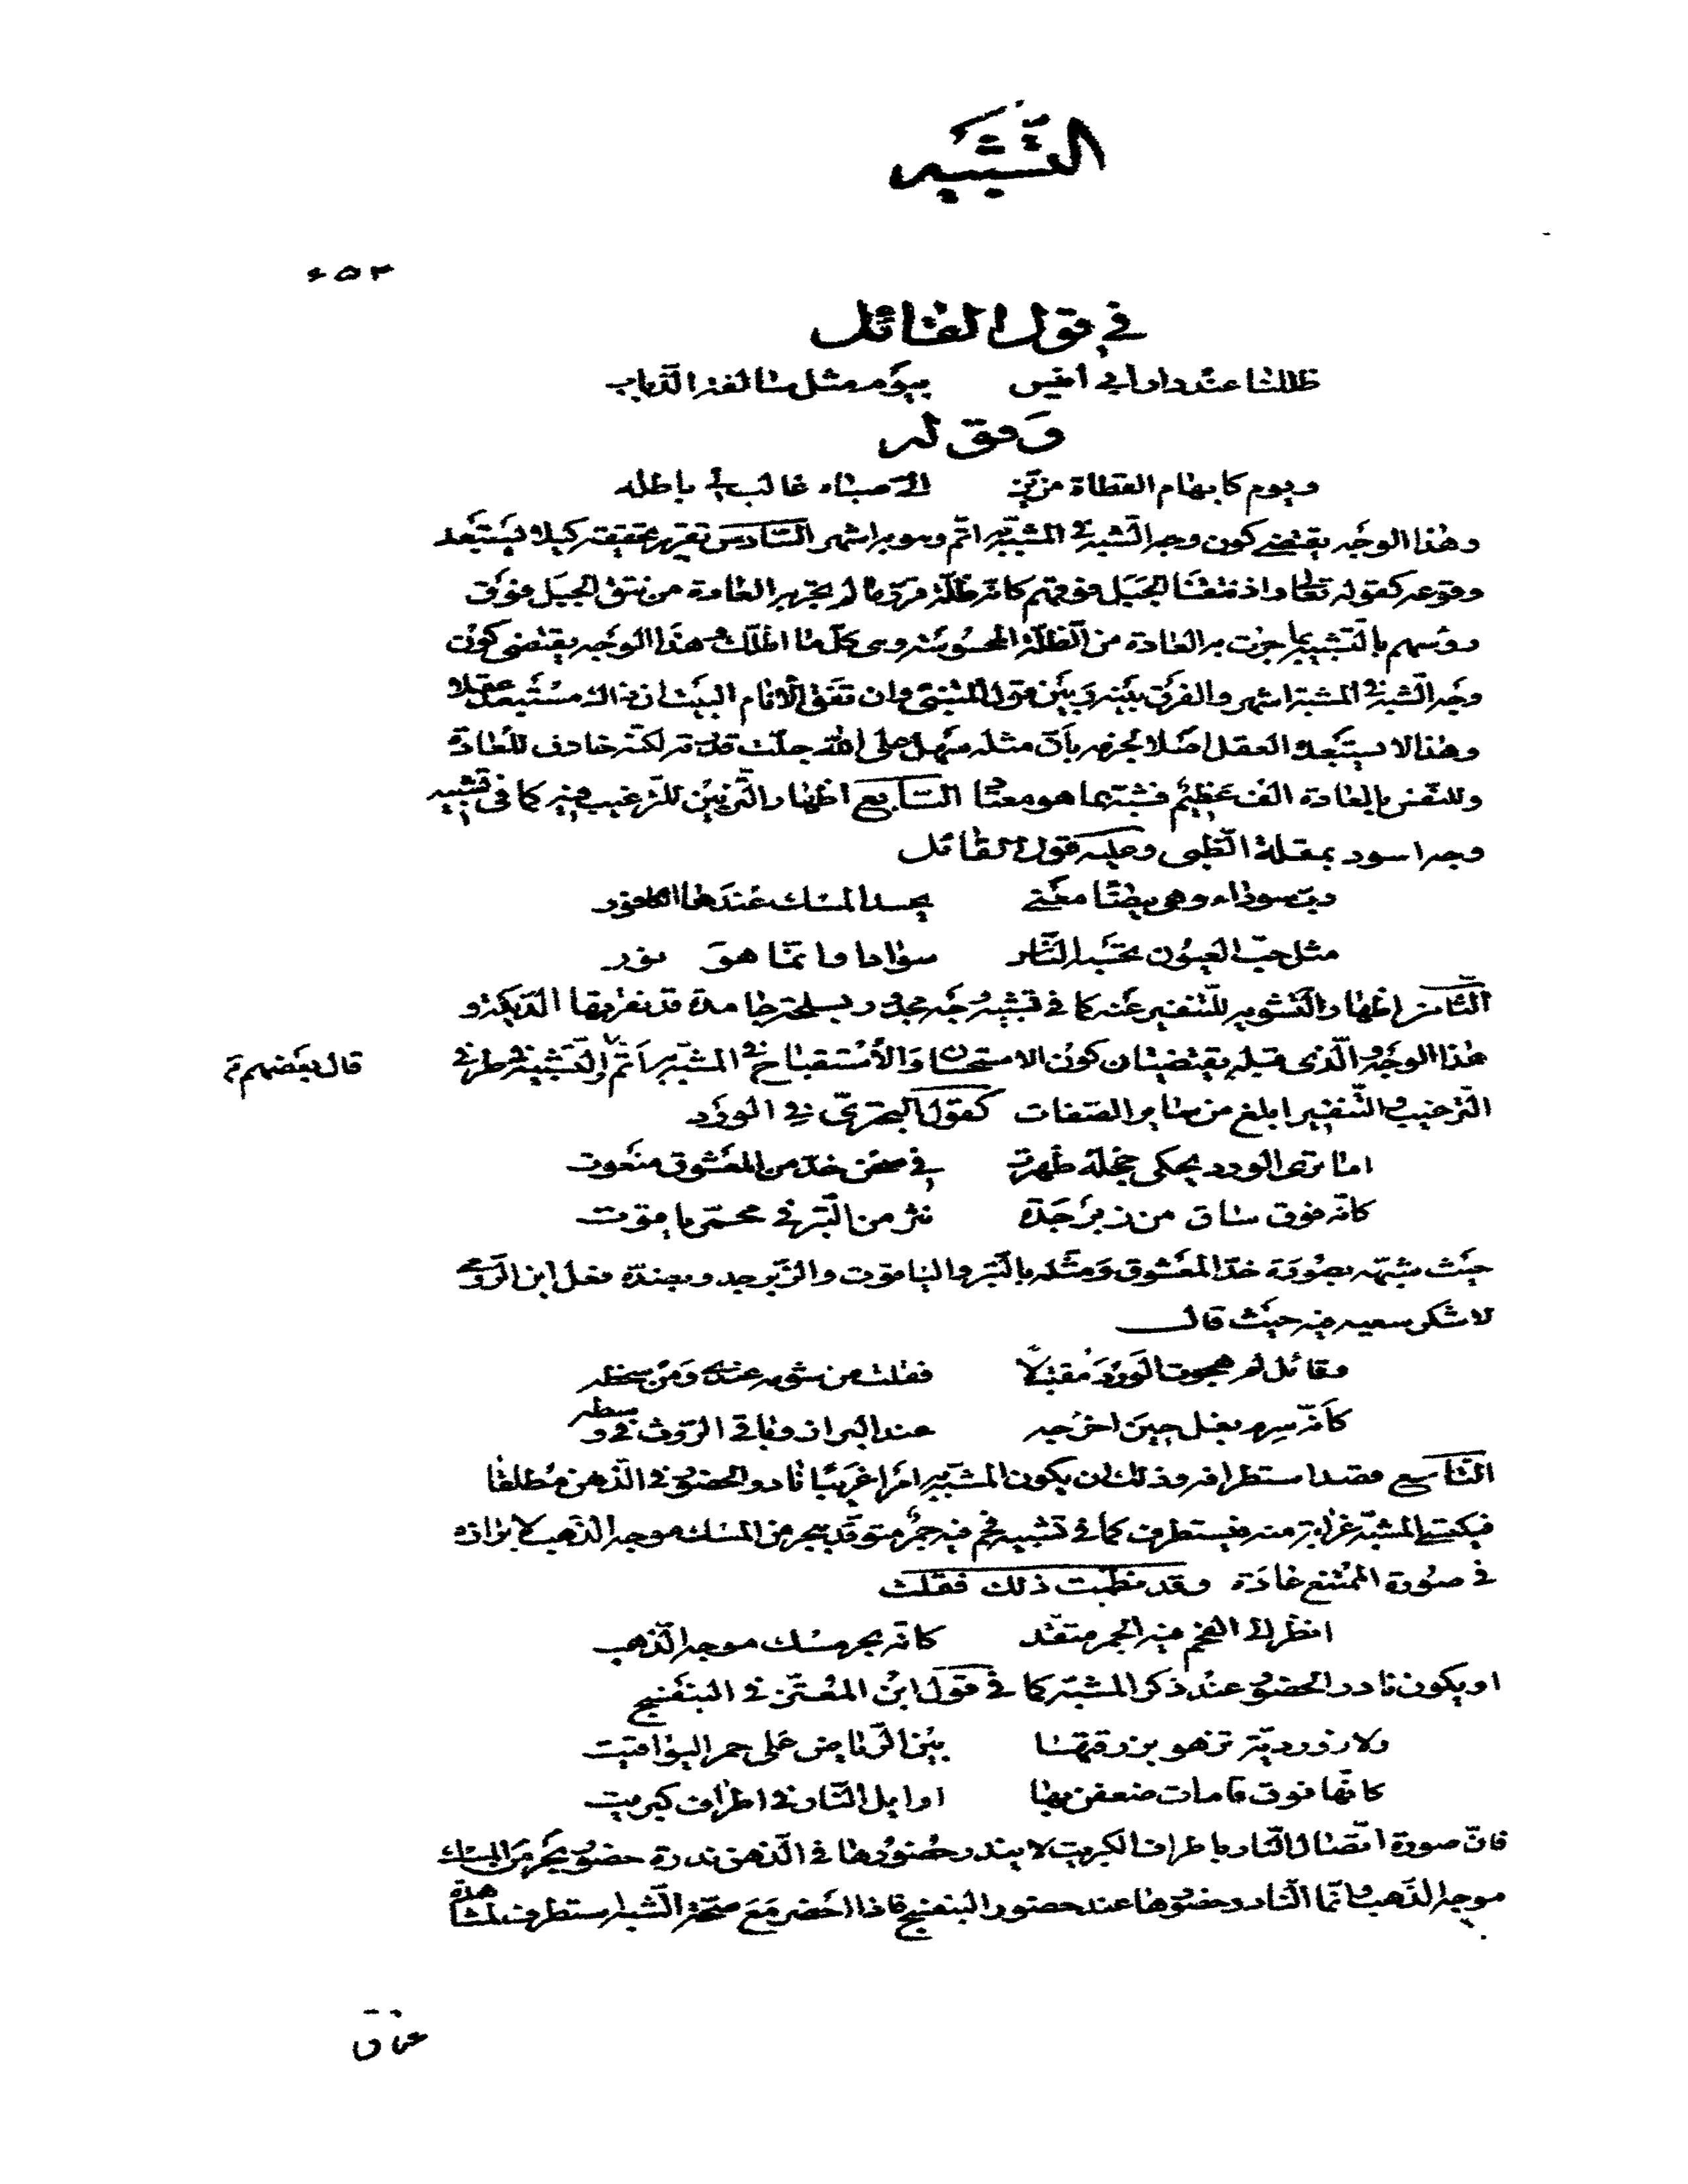 التشبيه
٦٥٣
في قول القائل
ظللنا عند دار ابي انيس بيوم مثل سالفة الذباب
وقوله
ويوم كابهام القطاة مزين الى صباه غالب لي باطله
وهذا الوجه يقتضي كون وجه الشبه في المشبه به اتم وهو به اشهر السادس تقرير حقيقته كيلا يستبعد
وقوعه كقوله تعالى واذ نتقنا الجبل فوقهم كانه ظلة قرر ما لم يجر به العادة من نتق الجبل فوق
رؤسهم بالتشبيه بما جرت به العادة من الظلة المحسوسة وهي كل ما اظلك هذا الوجه يقتضى كون
وجه الشبه في المشبه اشهر والفرق بينه وبين قول المتنبي وان تفق الأنام البيت ان ذاك مستبعد عقلا
وهذا لا يستبعده العقل اصلا لجزمه بأن مثله سهل على الله جلت قدرته لكنه خارق للعادة
وللنفس بالعادة الف عظيم فشبه بما هو معتاد السابع اظهار التزيين للترغيب فيه كما في تشبيه
وجه اسود بمقلة الظبي وعليه قول القائل
رب سوداء وهي بيضا معنى يحسد المسك عندها الكافور
مثل حب العيون يحسبه النار سوادا وانما هو نور
الثامن اظهار التشويه للتنفير عنه كما في تشبيه وجه مجدور بسلحة جامدة قد نقرتها الديكة و
هذا الوجه والذي قبله يقتضيان كون الاستحسان والأستقباح في المشبه به اتم اذ التشبيه في طرفي
قال بعضهم
الترغيب والتنفير ابلغ من ساير الصفات كقول البحتري في الورد
اما ترى الورد يحكي خجلة ظهرت في صحن خد من المعشوق منعوت
كانه فوق ساق من زبرجدة نثر من التبر في محمر ياقوت
حيث شبهه بصورة خد المعشوق ومثله بالتبر والياقوت والزبرجد وبضده فعل ابن الرومي
لا شكر سعيه فيه حيث قال
وقائل لم هجوت الورد مقتبلا فقلت من شومه عندي ومن سخطه
كأنه سرم بغل حين اخرجه عند البراز وباقي الروث في وسطه
التاسع قصد استطرافه وذلك ان يكون المشبه به امرا غريبا نادر الحضور في الذهن مطلقا
فيكتسي المشبه غرابة منه فيستطرف كما في تشبيه فحم فيه جمر متوقد ببحر من المسك موجه الذهب لابرازه
في صورة الممتنع عادة وقد نظمت ذلك فقلت
انظر الى الفحم فيه الجمر متقد كانه بحر مسك موجه الذهب
او يكون نادر الحضور عند ذكر المشبه كما في قول ابن المعتز في البنفسج
ولازوردية تزهو بزرقتها بين الرياض على حمر اليواقيت
كانها فوق قامات ضعفن بها اوايل النار في اطراف كبريت
فان صورة اتصال النار باطراف الكبريت لا يندر حضورها في الذهن ندرة حضور بحر من المسك
موجه الذهب وانما النادر حضورها عند حضور البنفسج فاذا احضر مع صحة الشبه استطرف لمشاهدة
عناق